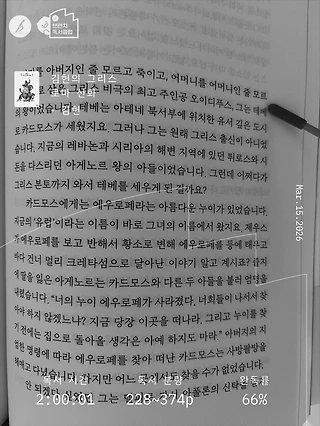 천천히
독서클럽
김헌의 그리스
로마 신화
김헌
Mar.15.2026
아버지인 줄 모르고 죽이고, 어머니를 어머니인 줄 모르
비극의 최고 주인공 오이디푸스, 그는 테베
의 왕이었습니다. 테베는 아테네 북서부에 위치한 유서 깊은 도시
로 카드모스가 세웠지요. 그러나 그는 원래 그리스 출신이 아니었
습니다. 지금의 레바논과 시리아의 해변 지역에 있던 튀로스와 시
돈을 다스리던 아게노르 왕의 아들이었습니다. 그런데 어쩌다가
그리스 본토까지 와서 테베를 세우게 된 걸까요?
카드모스에게는 에우로페라는 아름다운 누이가 있었습니다.
지금의 '유럽'이라는 이름이 바로 그녀의 이름에서 왔지요. 제우스
가 에우로페를 보고 반해서 황소로 변해 에우로페를 등에 태우고
바다 건너 멀리 크레타섬으로 달아난 이야기 알고 계시죠? 졸지
에 딸을 잃은 아게노르는 카드모스와 다른 두 아들을 불러 엄명을
내렸습니다. "너의 누이 에우로페가 사라졌다. 너희들이 나서서 찾
아야 하지 않겠느냐? 지금 당장 이곳을 떠나라. 그리고 누이를 찾
기 전에는 집으로 돌아올 생각은 아예 하지도 마라." 아버지의 지
엄한 명령에 따라 에우로페를 찾아 떠난 카드모스는 사방팔방을
헤매고 다녔습니다. 하지만 어느 곳에서도 찾을 수가 없었습니다.
안 되겠다 그는 아폴론의 신탁을
독서 시간 독서 분량 완독률
2:00:01 228~374p 66%